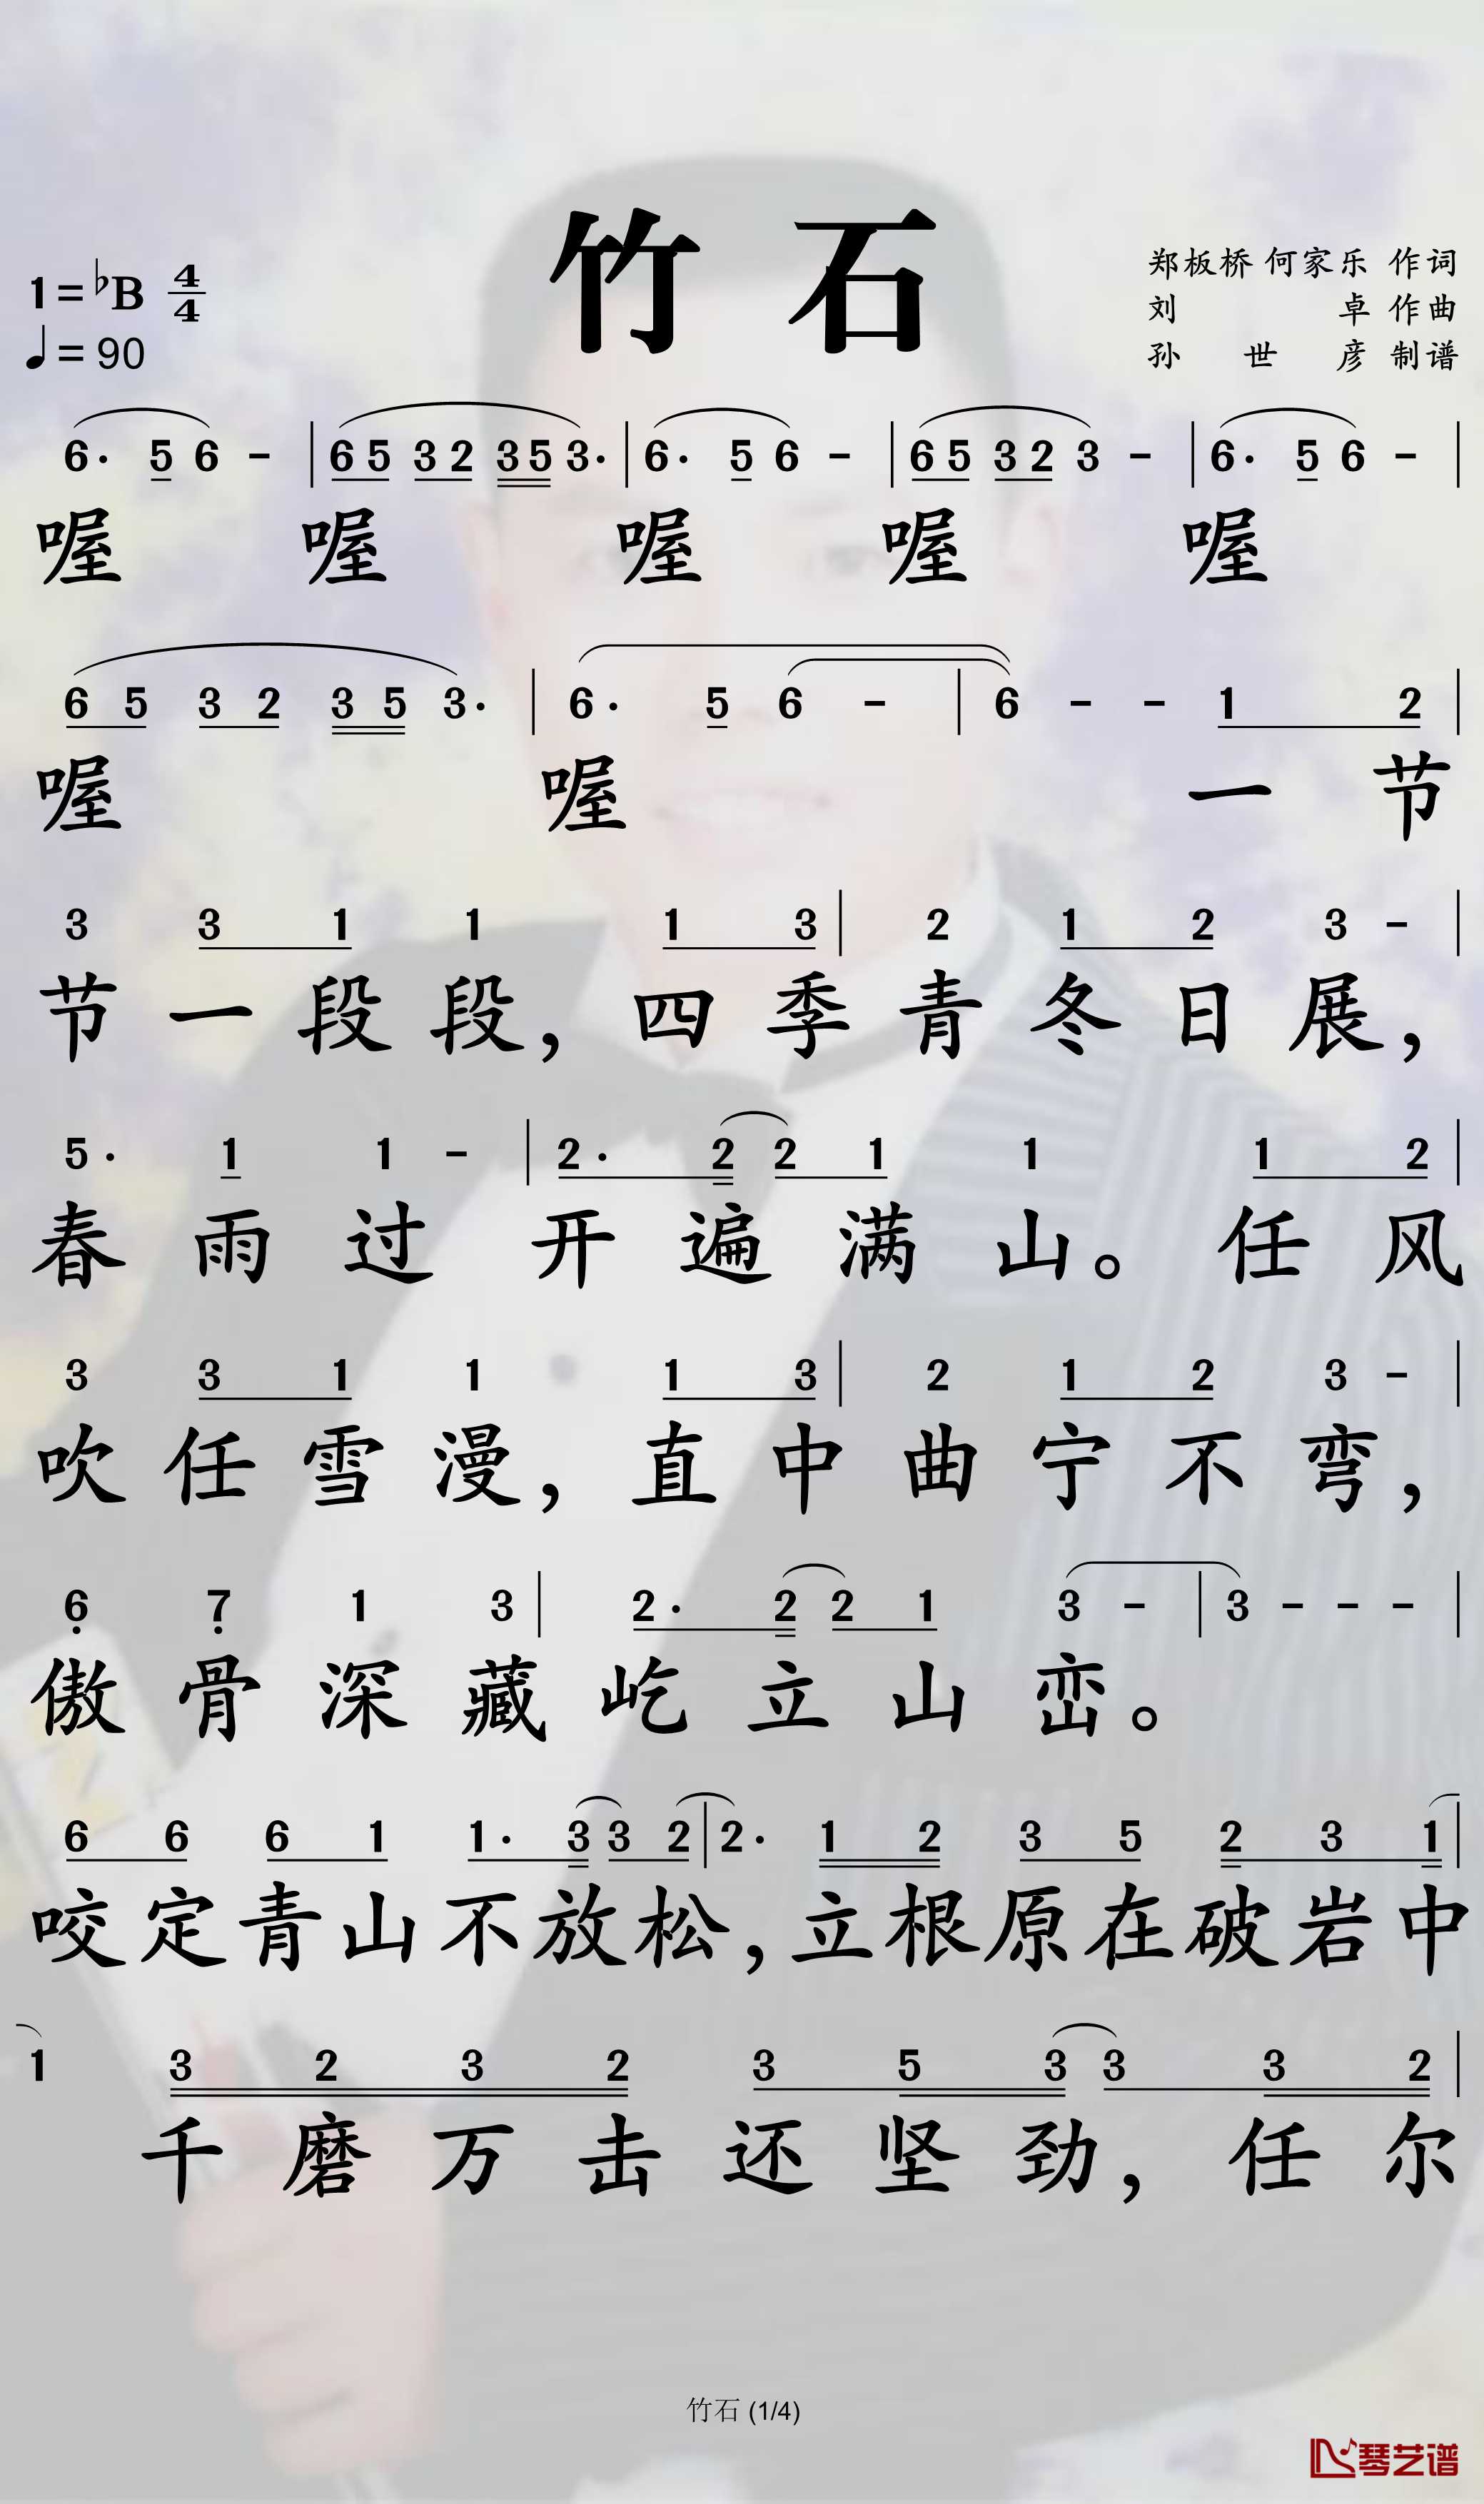 竹石
1=♭B 4/4
♩=90
郑板桥 何家乐 作词
刘 卓 作曲
孙 世 彦 制谱
6· 5 6 - | 6 5 3 2 3 5 3· | 6· 5 6 - | 6 5 3 2 3 - | 6· 5 6 - |
喔 喔 喔 喔 喔
6 5 3 2 3 5 3· | 6· 5 6 - | 6 - - 1 2 |
喔 喔 一 节
3 3 1 1 1 3 | 2 1 2 3 - |
节 一 段 段, 四 季 青 冬 日 展,
5· 1 1 - | 2· 2 2 1 1 1 2 |
春 雨 过 开 遍 满 山。 任 风
3 3 1 1 1 3 | 2 1 2 3 - |
吹 任 雪 漫, 直 中 曲 宁 不 弯,
6̣ 7̣ 1 3 | 2· 2 2 1 3 - | 3 - - - |
傲 骨 深 藏 屹 立 山 峦。
6 6 6 1 1· 3 3 2 | 2· 1 2 3 5 2 3 1 |
咬 定 青 山 不 放 松, 立 根 原 在 破 岩 中
1 3 2 3 2 3 5 3 3 3 2 |
千 磨 万 击 还 坚 劲, 任 尔
竹石 (1/4)
琴艺谱